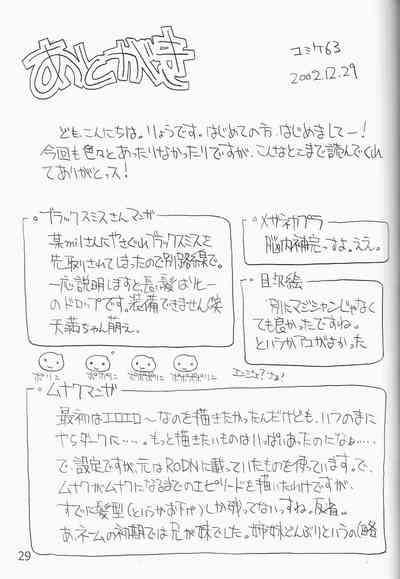 あとがき
コミケ63
2002.12.29
ども、こんにちは。りょうです。はじめての方、はじめましてー!
今回も色々とあったりなかったりですが、こんなとこまで読んでくれ
てありがとっス!
ブラックスミスさんマンガ
某milさんにやさぐれブラックスミスを
先取りされてしまったので別路線で。
一応説明しますと、長い髪はバドー
のドロップです。装備できません(笑
天茄ちゃん萌え。
メガネカプラ
脳内補完っすよ。ええ。
目次絵
別にマジシャンじゃなく
ても良かったですね。
というかアコがよかった
ポリン
ポポリン
ムナクマンガ
最初はエロエロ〜なのを描きたかったんだけども、いつのまに
やらダークに……。もっと描きたいものはいっぱいあったのになぁ……
で、設定ですが、元はRODNに載っていたものを使っています。で、
ムナクがムナクになるまでのエピソードを描いたわけですが、
すでに髪型(というかお下げ)しか残ってないっすね。反省。
あ、ネームの初期では兄が妹でした。姉妹どんぶりというの(略
29